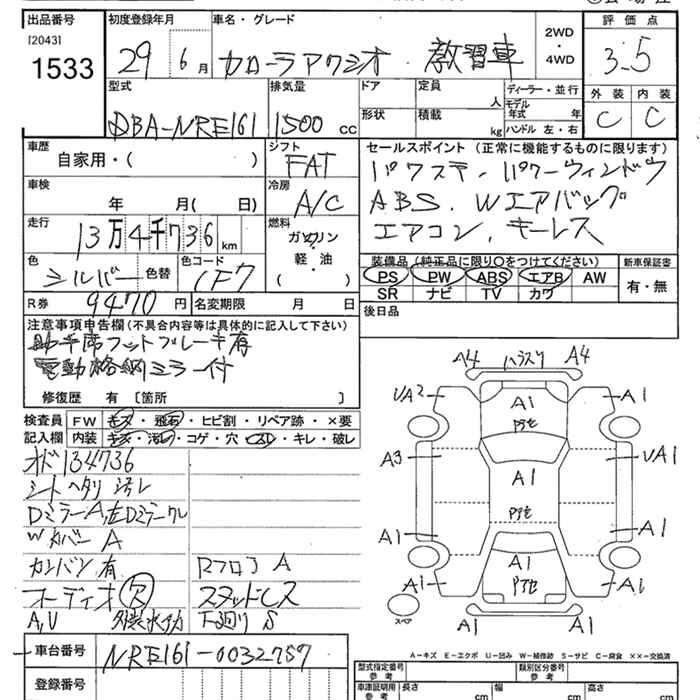 出品番号 初度登録年月 車名・グレード 2WD・4WD 評価点
[2043]
1533 29 6月 カローラアクシオ 教習車 3.5
外装 内装
C C
型式 排気量 ドア 定員 人 ディーラー・並行
モデル年式 年
形状 積載 kg ハンドル 左・右
DBA-NRE161 1500 cc
車歴 シフト セールスポイント(正常に機能するものに限ります)
自家用・( ) FAT パワステ・パワーウィンドウ
車検 冷房 ABS. Wエアバッグ
年 月( 日) A/C エアコン、キーレス
走行 燃料
13万4千736km ガソリン・軽・油 ( )
装備品(純正品に限り○をつけてください) 新車保証書
色 色替 色コード PS PW ABS エアB AW 有・無
シルバー 1F7 SR ナビ TV カワ
R券 9470円 名変期限 月 日 後日品
注意事項申告欄(不具合内容等は具体的に記入して下さい)
助手席フットブレーキ有
電動格納ミラー付
修復歴 有 〔箇所 〕
検査員記入欄 FW キズ・飛石・ヒビ割・リペア跡・×要
内装 キズ・汚れ・コゲ・穴・スレ・キレ・破レ
オド134736
シートヘタリ 汚レ
DミラーA,左Dミラーワレ
WカバーA
カンバン有 RフロアA
オーディオ欠 スタッドレス
A,U 下廻りS
A4 ハラスリ A4
UA2 A1 A1
A3 A1 UA1
A1 A1
A1 A1 A1
スペア
A1 A1
A-キズ E-エクボ U-凹み W-補修跡 S-サビ C-腐食 ××-交換済
車台番号 NRE161-0032757
登録番号
型式指定番号 参考 類別区分番号 参考
車庫証明用 参考 長さ cm 幅 cm 高さ cm